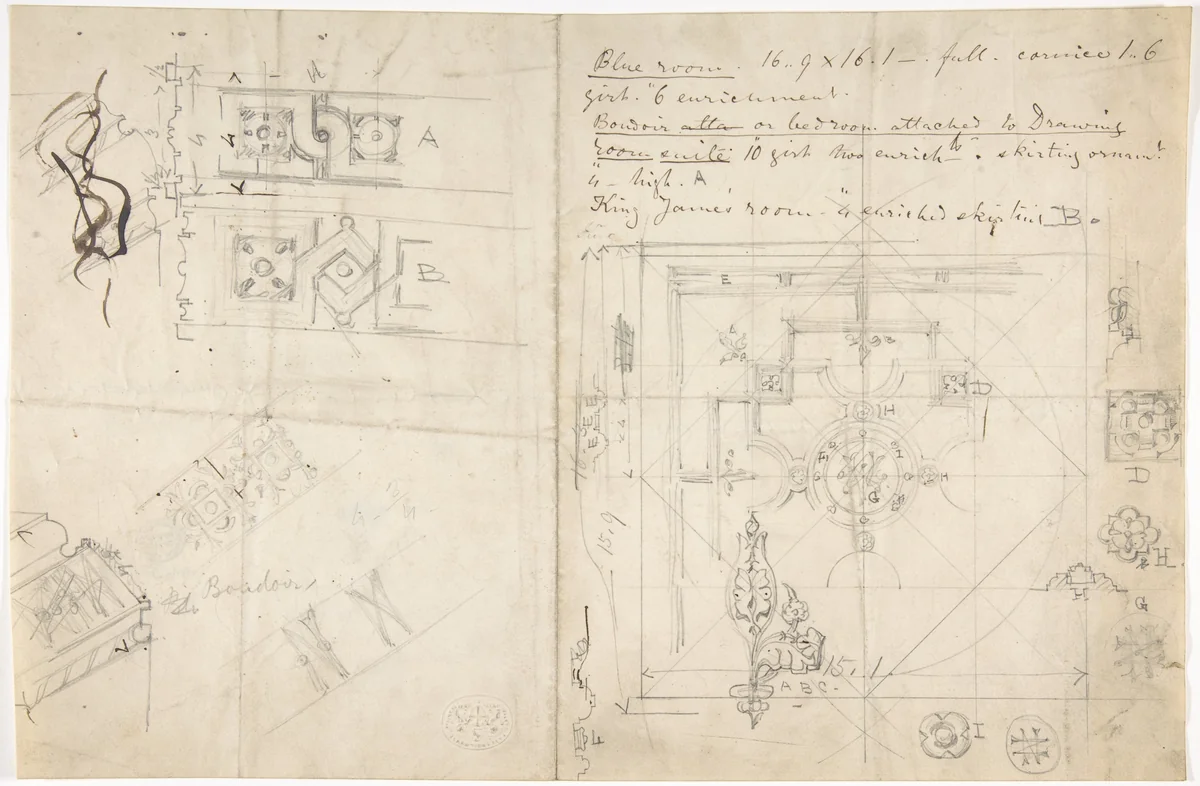 Blue room. 16.. 9 x 16. 1 —. full. cornice 1.. 6
girt. "6 enrichment.
Boudoir atta or bedroom attached to Drawing
room suite 10 girt two enrich ts. skirting ornamt
"4 – high. A
King James' room – "4 enriched skirting B.
4
4
A
B
E
A
D
I H
F
H
I
G
E E E
4
15. 9
15. 1
A B C.
D
H
H
G
I
F
Boudoir